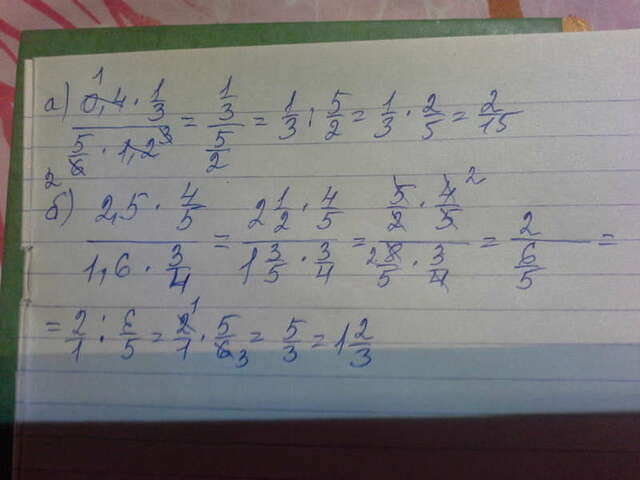 а) (0,4 · 1/3) / (5/6 · 1,2) = (1/3) / (5/2) = 1/3 : 5/2 = 1/3 · 2/5 = 2/15
б) (2,5 · 4/5) / (1,6 · 3/4) = (2 1/2 · 4/5) / (1 3/5 · 3/4) = (5/2 · 4/5) / (8/5 · 3/4) = 2 / (6/5) =
= 2/1 : 6/5 = 2/1 · 5/6 = 5/3 = 1 2/3